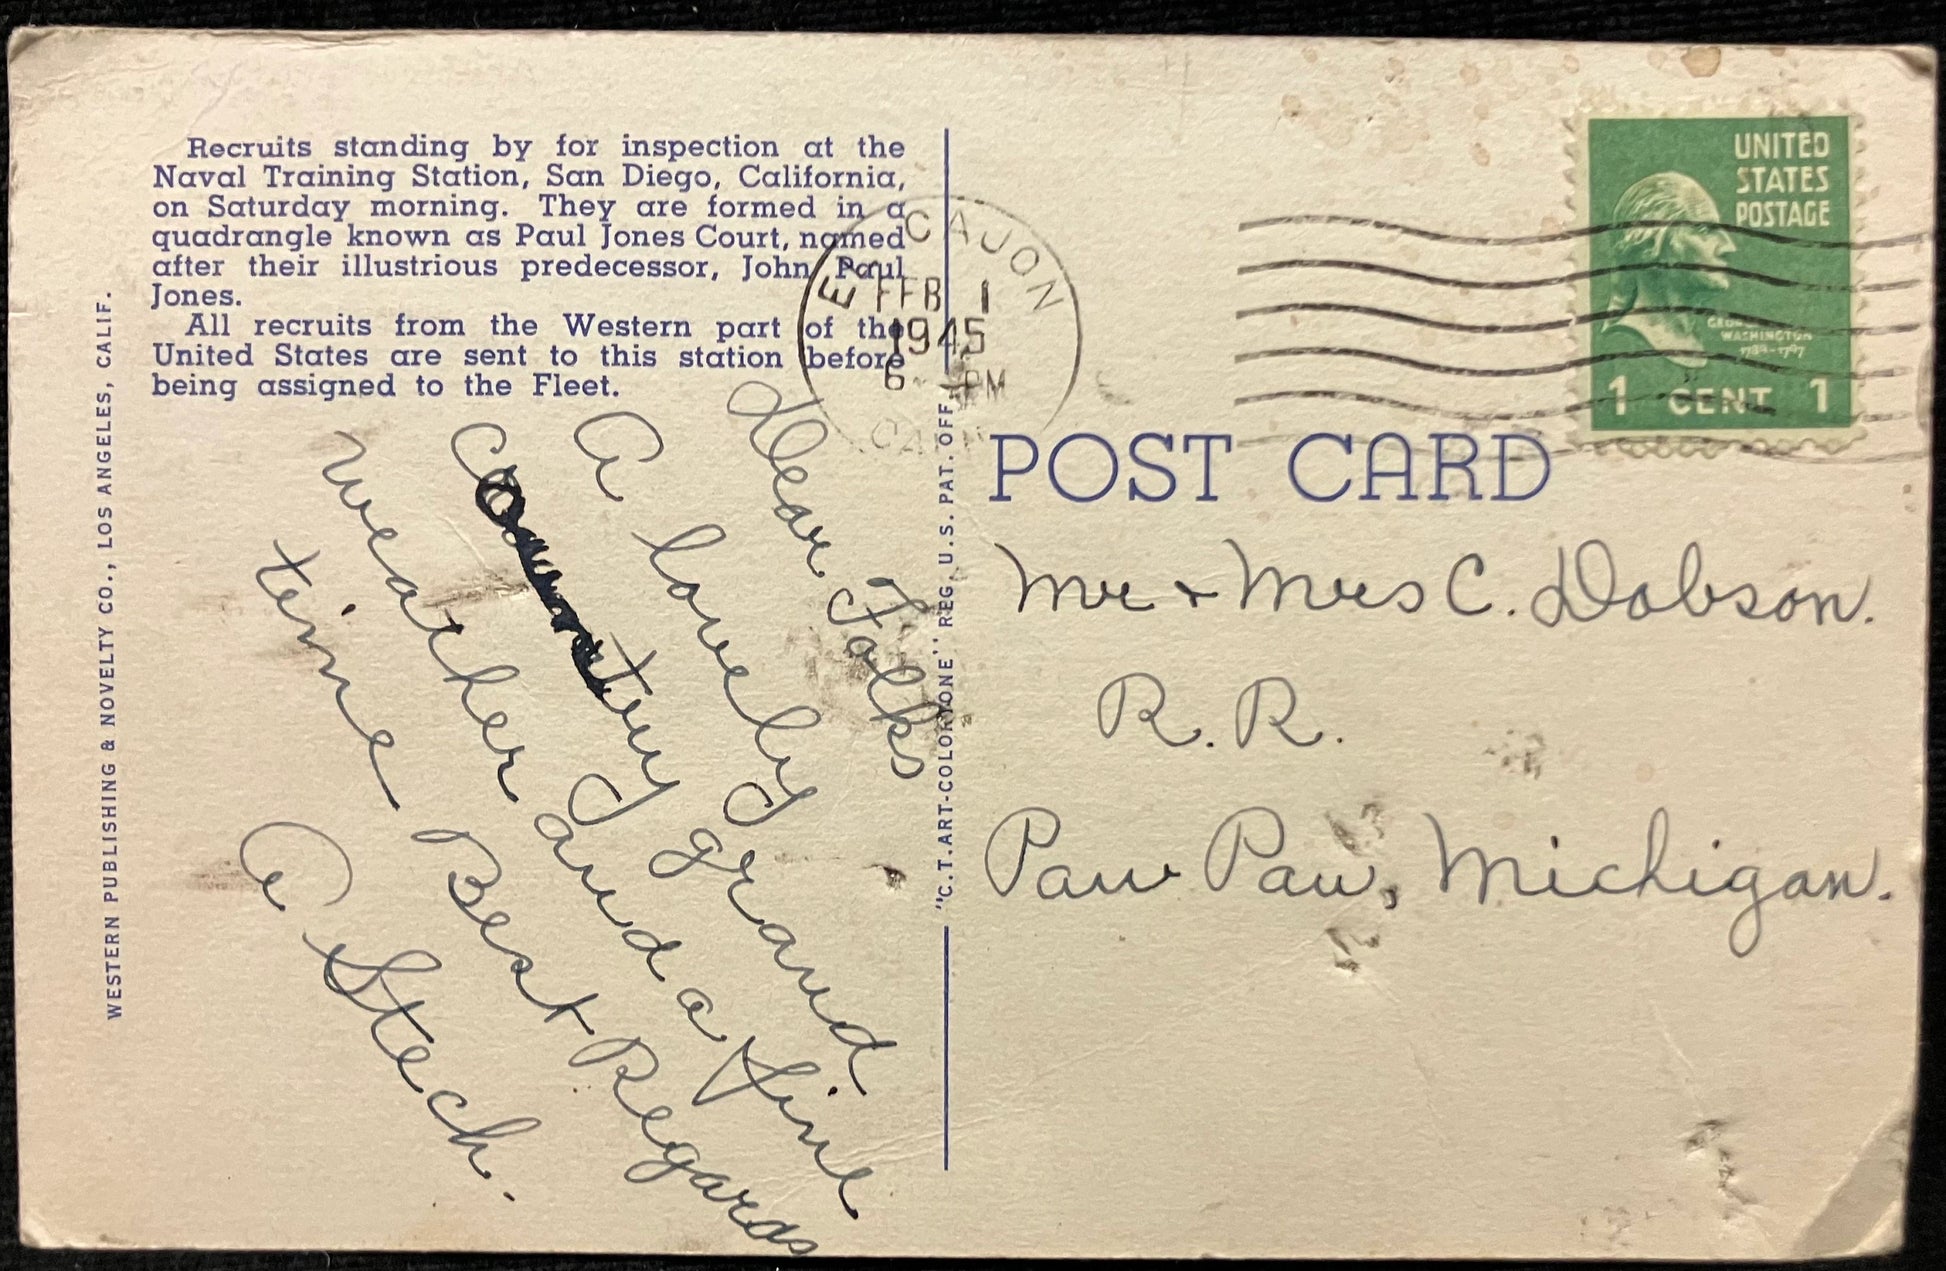 Recruits standing by for inspection at the
Naval Training Station, San Diego, California,
on Saturday morning. They are formed in a
quadrangle known as Paul Jones Court, named
after their illustrious predecessor, John Paul
Jones.
All recruits from the Western part of the
United States are sent to this station before
being assigned to the Fleet.
WESTERN PUBLISHING & NOVELTY CO., LOS ANGELES, CALIF.
Dear Folks
A lovely
country grand
weather and a fine
time Best Regards
A Stech.
"C.T. ART-COLORTONE" REG. U.S. PAT. OFF.
EL CAJON
FEB 1
1945
6 PM
UNITED
STATES
POSTAGE
GEORGE
WASHINGTON
1789-1797
1 CENT 1
POST CARD
Mr & Mrs C. Dobson.
R. R.
Paw Paw, Michigan.